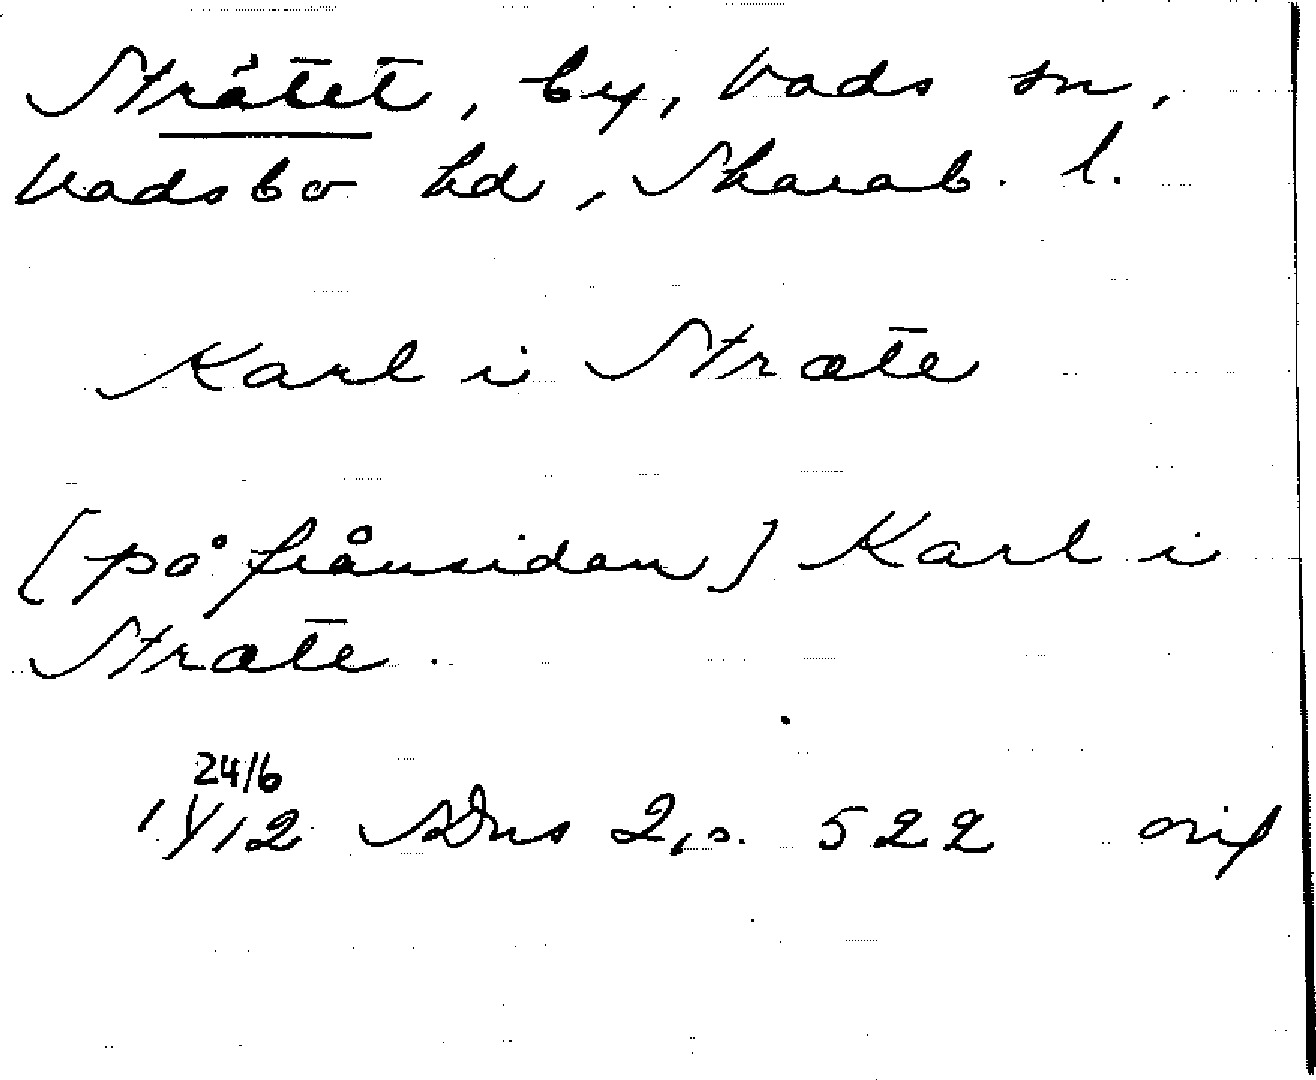 Stråtet, by, Vads sn,
Vadsbo hd, Skarab. l.
Karl i Stræte
[på frånsidan] Karl i
Stræte.
24/6
1412 SDns 2, s. 522 orig